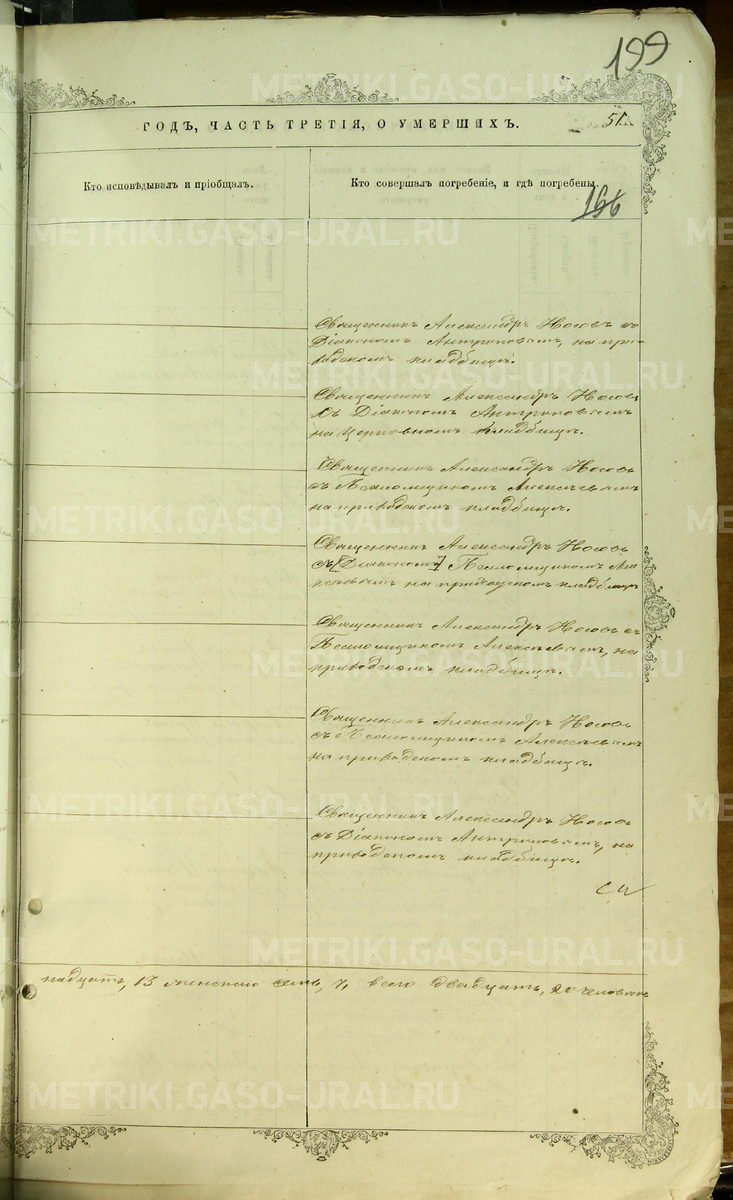 199
ГОДЪ, ЧАСТЬ ТРЕТІЯ, О УМЕРШИХЪ.
51.
Кто исповѣдывалъ и пріобщалъ.
Кто совершалъ погребеніе, и гдѣ погребены.
166
Священникъ Александръ Носовъ съ
Діакономъ Антроповымъ, на при-
ходскомъ кладбищѣ.
Священникъ Александръ Носовъ
съ Діакономъ Антроповымъ
на церковномъ кладбищѣ.
Священникъ Александръ Носовъ
съ Псаломщикомъ Алексѣевымъ
на приходскомъ кладбищѣ.
Священникъ Александръ Носовъ
съ [Діакономъ] Псаломщикомъ Але-
ксѣевымъ на приходскомъ кладбищѣ
Священникъ Александръ Носовъ съ
Псаломщикомъ Алексѣевымъ, на
приходскомъ кладбищѣ.
Священникъ Александръ Носовъ
съ Псаломщикомъ Алексѣевымъ
на приходскомъ кладбищѣ.
Священникъ Александръ Носовъ
съ Діакономъ Антроповымъ, на
приходскомъ кладбищѣ.
надцать, 13 женскаго семь, 7, всего двадцать, 20 человѣкъ
METRIKI.GASO-URAL.RU